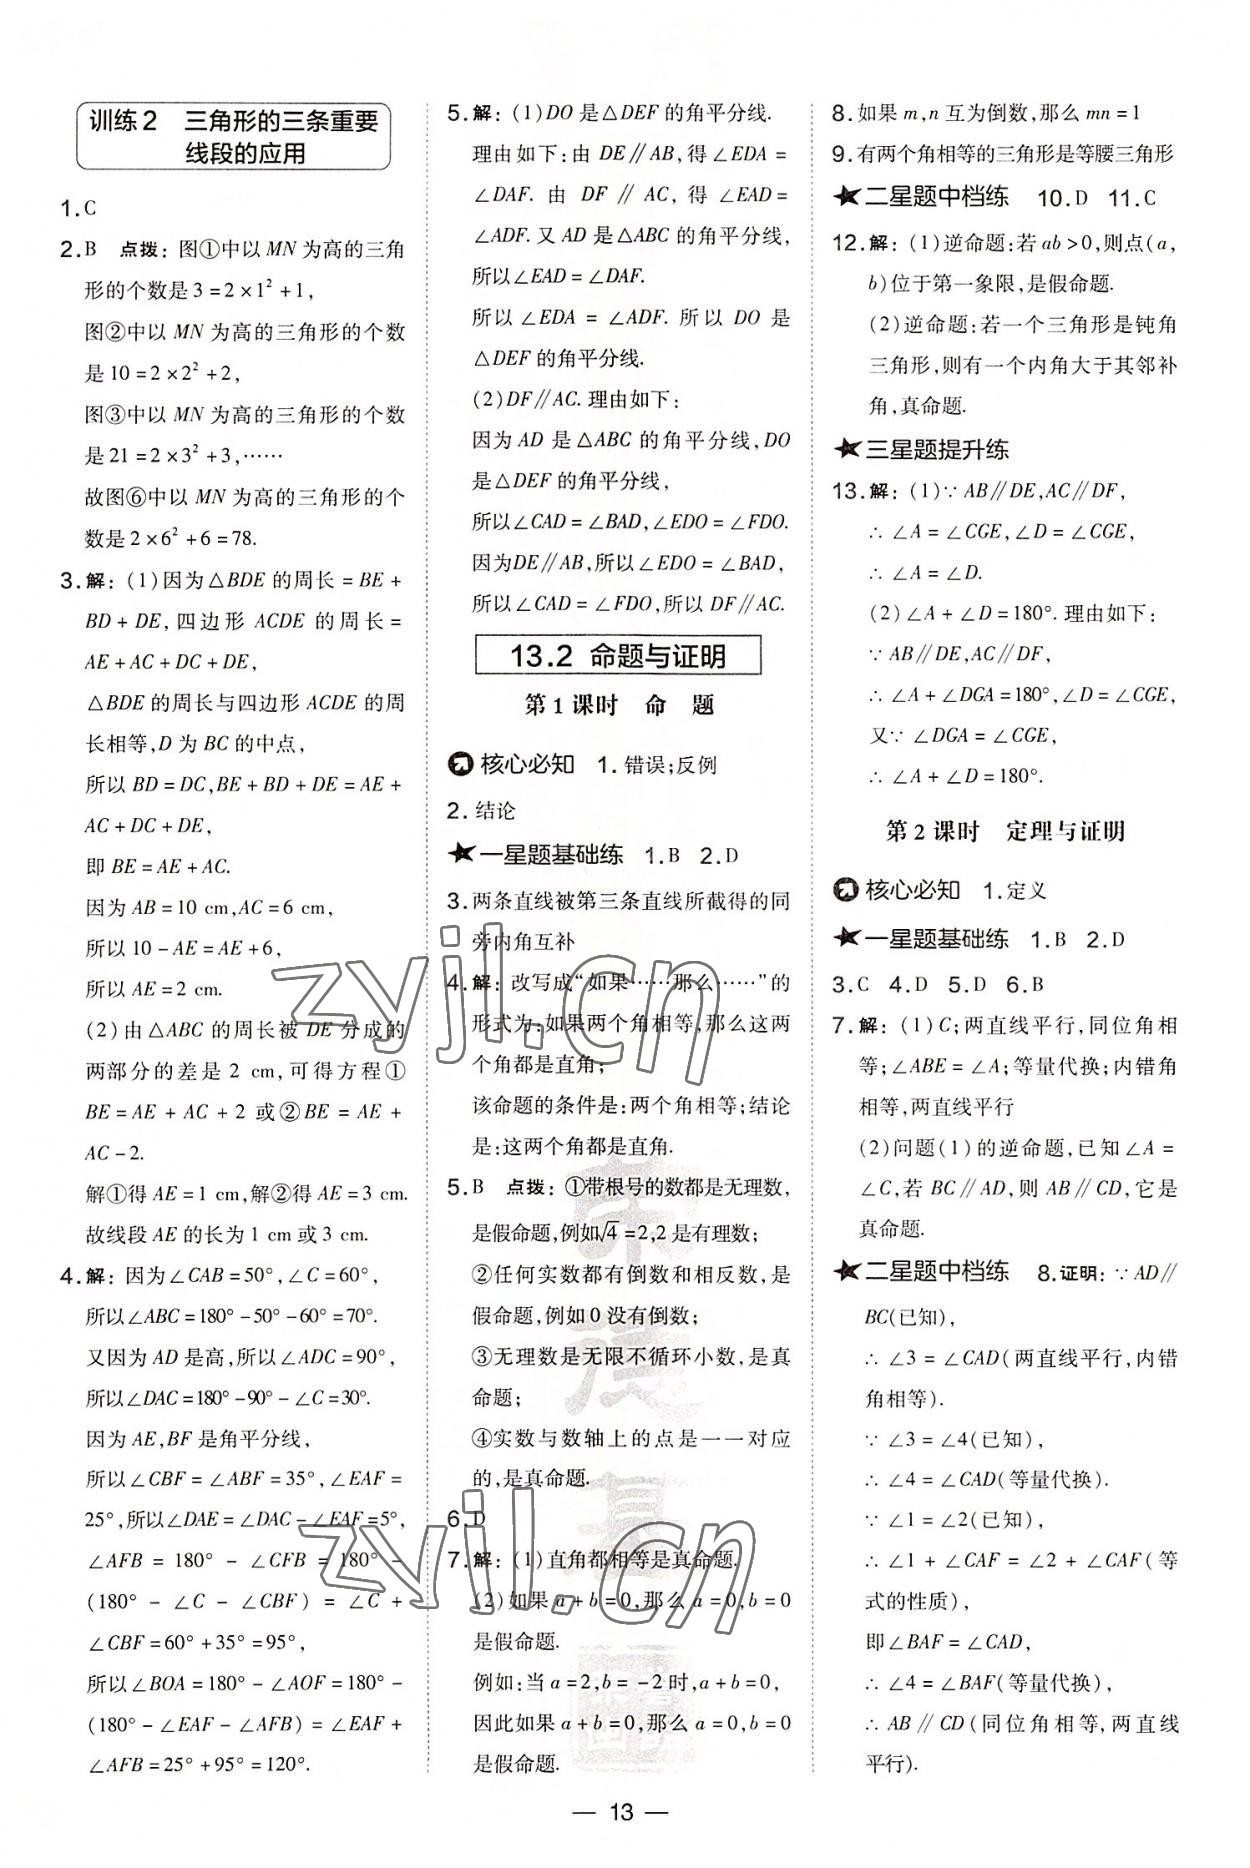 训练2 三角形的三条重要
线段的应用
1.C
2.B 点拨：图①中以 MN 为高的三角
形的个数是 3=2×1²+1,
图②中以 MN 为高的三角形的个数
是 10=2×2²+2,
图③中以 MN 为高的三角形的个数
是 21=2×3²+3,……
故图⑥中以 MN 为高的三角形的个
数是 2×6²+6=78.
3.解：(1)因为△BDE 的周长=BE+
BD+DE,四边形 ACDE 的周长=
AE+AC+DC+DE,
△BDE 的周长与四边形 ACDE 的周
长相等,D 为 BC 的中点,
所以 BD=DC,BE+BD+DE=AE+
AC+DC+DE,
即 BE=AE+AC.
因为 AB=10 cm,AC=6 cm,
所以 10-AE=AE+6,
所以 AE=2 cm.
(2)由△ABC 的周长被 DE 分成的
两部分的差是 2 cm,可得方程①
BE=AE+AC+2 或②BE=AE+
AC-2.
解①得 AE=1 cm,解②得 AE=3 cm.
故线段 AE 的长为 1 cm 或 3 cm.
4.解：因为∠CAB=50°,∠C=60°,
所以∠ABC=180°-50°-60°=70°.
又因为 AD 是高,所以∠ADC=90°,
所以∠DAC=180°-90°-∠C=30°.
因为 AE,BF 是角平分线,
所以∠CBF=∠ABF=35°,∠EAF=
25°,所以∠DAE=∠DAC-∠EAF=5°,
∠AFB=180°-∠CFB=180°-
(180°-∠C-∠CBF)=∠C+
∠CBF=60°+35°=95°,
所以∠BOA=180°-∠AOF=180°-
(180°-∠EAF-∠AFB)=∠EAF+
∠AFB=25°+95°=120°.
5.解：(1)DO 是△DEF 的角平分线.
理由如下：由 DE∥AB,得∠EDA=
∠DAF.由 DF∥AC,得∠EAD=
∠ADF.又 AD 是△ABC 的角平分线,
所以∠EAD=∠DAF.
所以∠EDA=∠ADF.所以 DO 是
△DEF 的角平分线.
(2)DF∥AC.理由如下：
因为 AD 是△ABC 的角平分线,DO
是△DEF 的角平分线,
所以∠CAD=∠BAD,∠EDO=∠FDO.
因为DE∥AB,所以∠EDO=∠BAD,
所以∠CAD=∠FDO,所以 DF∥AC.
13.2 命题与证明
第1课时 命 题
核心必知 1.错误;反例
2.结论
★一星题基础练 1.B 2.D
3.两条直线被第三条直线所截得的同
旁内角互补
4.解：改写成“如果……那么……”的
形式为:如果两个角相等,那么这两
个角都是直角;
该命题的条件是:两个角相等;结论
是:这两个角都是直角.
5.B 点拨：①带根号的数都是无理数,
是假命题,例如√4=2,2是有理数;
②任何实数都有倒数和相反数,是
假命题,例如 0 没有倒数;
③无理数是无限不循环小数,是真
命题;
④实数与数轴上的点是一一对应
的,是真命题.
6.D
7.解：(1)直角都相等是真命题.
(2)如果 a+b=0,那么 a=0,b=0
是假命题.
例如:当 a=2,b=-2时,a+b=0,
因此如果 a+b=0,那么 a=0,b=0
是假命题.
8.如果 m,n 互为倒数,那么 mn=1
9.有两个角相等的三角形是等腰三角形
★二星题中档练 10.D 11.C
12.解：(1)逆命题:若 ab>0,则点(a,
b)位于第一象限,是假命题.
(2)逆命题:若一个三角形是钝角
三角形,则有一个内角大于其邻补
角,真命题.
★三星题提升练
13.解：(1)∵AB∥DE,AC∥DF,
∴∠A=∠CGE,∠D=∠CGE,
∴∠A=∠D.
(2)∠A+∠D=180°.理由如下:
∵AB∥DE,AC∥DF,
∴∠A+∠DGA=180°,∠D=∠CGE,
又∵∠DGA=∠CGE,
∴∠A+∠D=180°.
第2课时 定理与证明
核心必知 1.定义
★一星题基础练 1.B 2.D
3.C 4.D 5.D 6.B
7.解：(1)C;两直线平行,同位角相
等;∠ABE=∠A;等量代换;内错角
相等,两直线平行
(2)问题(1)的逆命题,已知∠A=
∠C,若 BC∥AD,则 AB∥CD,它是
真命题.
★二星题中档练 8.证明：∵AD∥
BC(已知),
∴∠3=∠CAD(两直线平行,内错
角相等).
∵∠3=∠4(已知),
∴∠4=∠CAD(等量代换).
∵∠1=∠2(已知),
∴∠1+∠CAF=∠2+∠CAF(等
式的性质),
即∠BAF=∠CAD,
∴∠4=∠BAF(等量代换),
∴AB∥CD(同位角相等,两直线
平行).
— 13 —
zyjl.cn
zyjl.cn